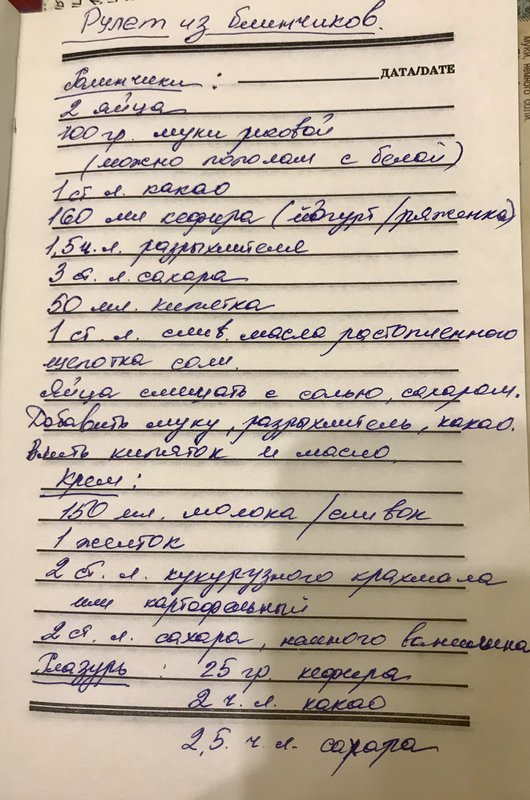 Рулет из блинчиков.
ДАТА/DATE
Блинчики :
2 яйца
100 гр. муки рисовой
(можно пополам с белой)
1 ст. л. какао
160 мл кефира (йогурт/ряженка)
1,5 ч. л. разрыхлителя
3 ст. л. сахара
50 мл. кипятка
1 ст. л. слив. масла растопленного
щепотка соли.
Яйца смешать с солью, сахаром.
Добавить муку, разрыхлитель, какао.
Влить кипяток и масло.
Крем :
150 мл. молока /сливок
1 желток
2 ст. л. кукурузного крахмала
или картофельный
2 ст. л. сахара, немного ванилина
Глазурь : 25 гр. кефира
2 ч. л. какао
2,5. ч. л. сахара